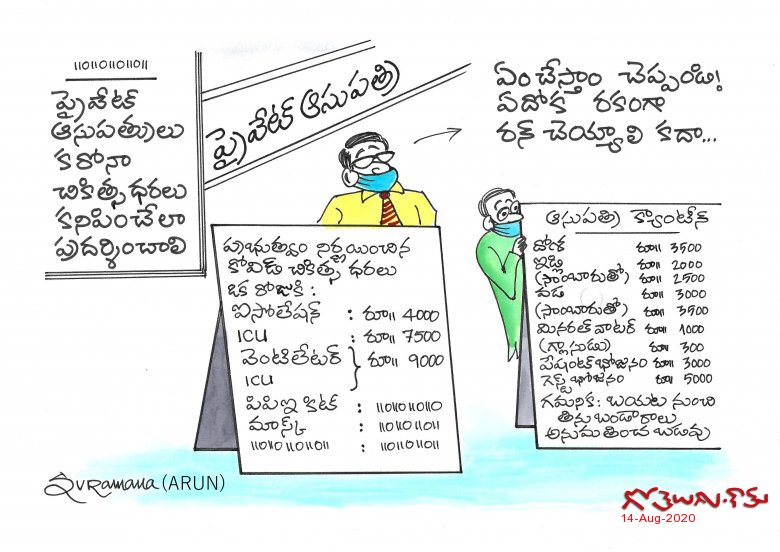 ııoıııoıııoıı
ప్రైవేట్
ఆసుపత్రులు
కరోనా
చికిత్స ధరలు
కనిపించేలా
ప్రదర్శించాలి
ప్రైవేట్ ఆసుపత్రి
ఏం చేస్తాం చెప్పండి!
ఏదోక రకంగా
రన్ చెయ్యాలి కదా...
ప్రభుత్వం నిర్ణయించిన
కోవిడ్ చికిత్స ధరలు
ఒక రోజుకి :
ఐసోలేషన్ : రూ॥ 4000
ICU : రూ॥ 7500
వెంటిలేటర్ } రూ॥ 9000
ICU
పిపిఇ కిట్ :
మాస్క్ :
ఆసుపత్రి క్యాంటీన్
దోశ రూ॥ 3500
ఇడ్లి రూ॥ 2000
(సాంబారుతో) రూ॥ 2500
వడ రూ॥ 3000
(సాంబారుతో) రూ॥ 3500
మినరల్ వాటర్ రూ॥ 1000
(గ్లాసుడు) రూ॥ 300
పేషంట్ భోజనం రూ॥ 3000
గెస్ట్ భోజనం రూ॥ 5000
గమనిక: బయట నుంచి
తినుబండారాలు
అనుమతించబడవు
SVRamana (ARUN)
గోతెలుగు.కామ్
14-Aug-2020